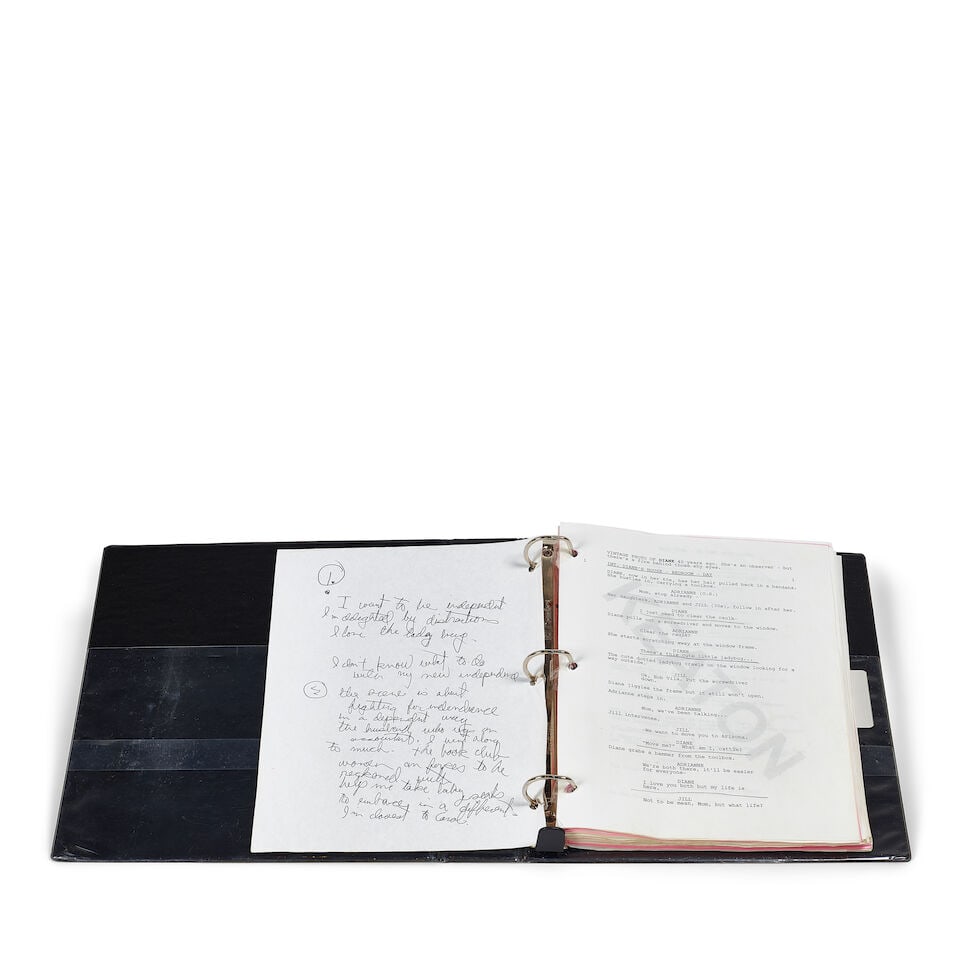 1.
I want to be independent
I'm delighted by distractions
I love the lady bug.
I don't know what to do
with my new independence
3
the scene is about
fighting for independence
in a dependent way
the husband who was an
accountant. I went along
to much. the book club
women are forces to be
reckoned with
help me take baby steps
to embrace in a different
I'm closest to Carol.
VINTAGE PHOTO OF DIANE 40 years ago. She's an observer - but
there's a fire behind those shy eyes.
1 INT. DIANE'S HOUSE - BEDROOM - DAY 1
DIANE, now in her 60s, has her hair pulled back in a bandana.
She bustles in, carrying a toolbox.
ADRIANNE (O.S.)
Mom, stop already.
Daughters, ADRIANNE and JILL (30s), follow in after her.
DIANE
I just need to clear the caulk.
Diane pulls out a screwdriver and moves to the window.
ADRIANNE
Clear the caulk?
She starts scratching away at the window frame.
DIANE
There's this cute little ladybug...
The cute dotted ladybug travels on the window looking for a
way outside.
JILL
Ok, Bob Vila. Put the screwdriver
down.
Diane jiggles the frame but it still won't open.
Adrianne steps in.
ADRIANNE
Mom, we've been talking...
Jill intervenes.
JILL
We want to move you to Arizona.
DIANE
"Move me?" What am I, cattle?
Diane grabs a hammer from the toolbox.
ADRIANNE
We're both there. It'll be easier
for everyone.
DIANE
I love you both but my life is
here.
JILL
Not to be mean, Mom, but what life?
KEATON